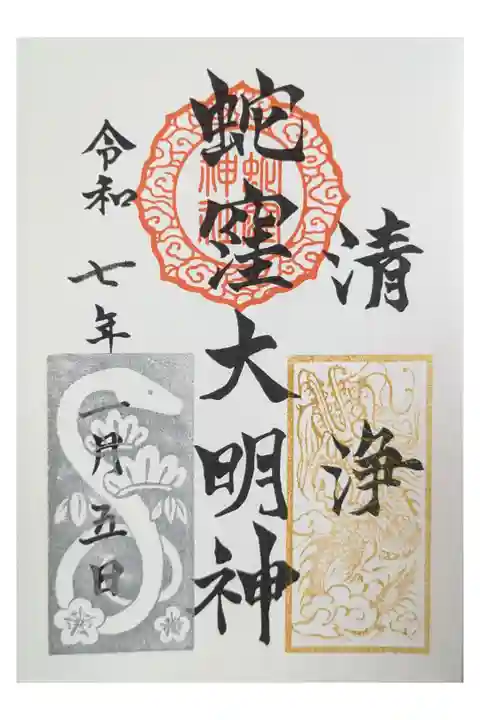 清浄
蛇窪大明神
令和七年一月五日
蛇窪神社